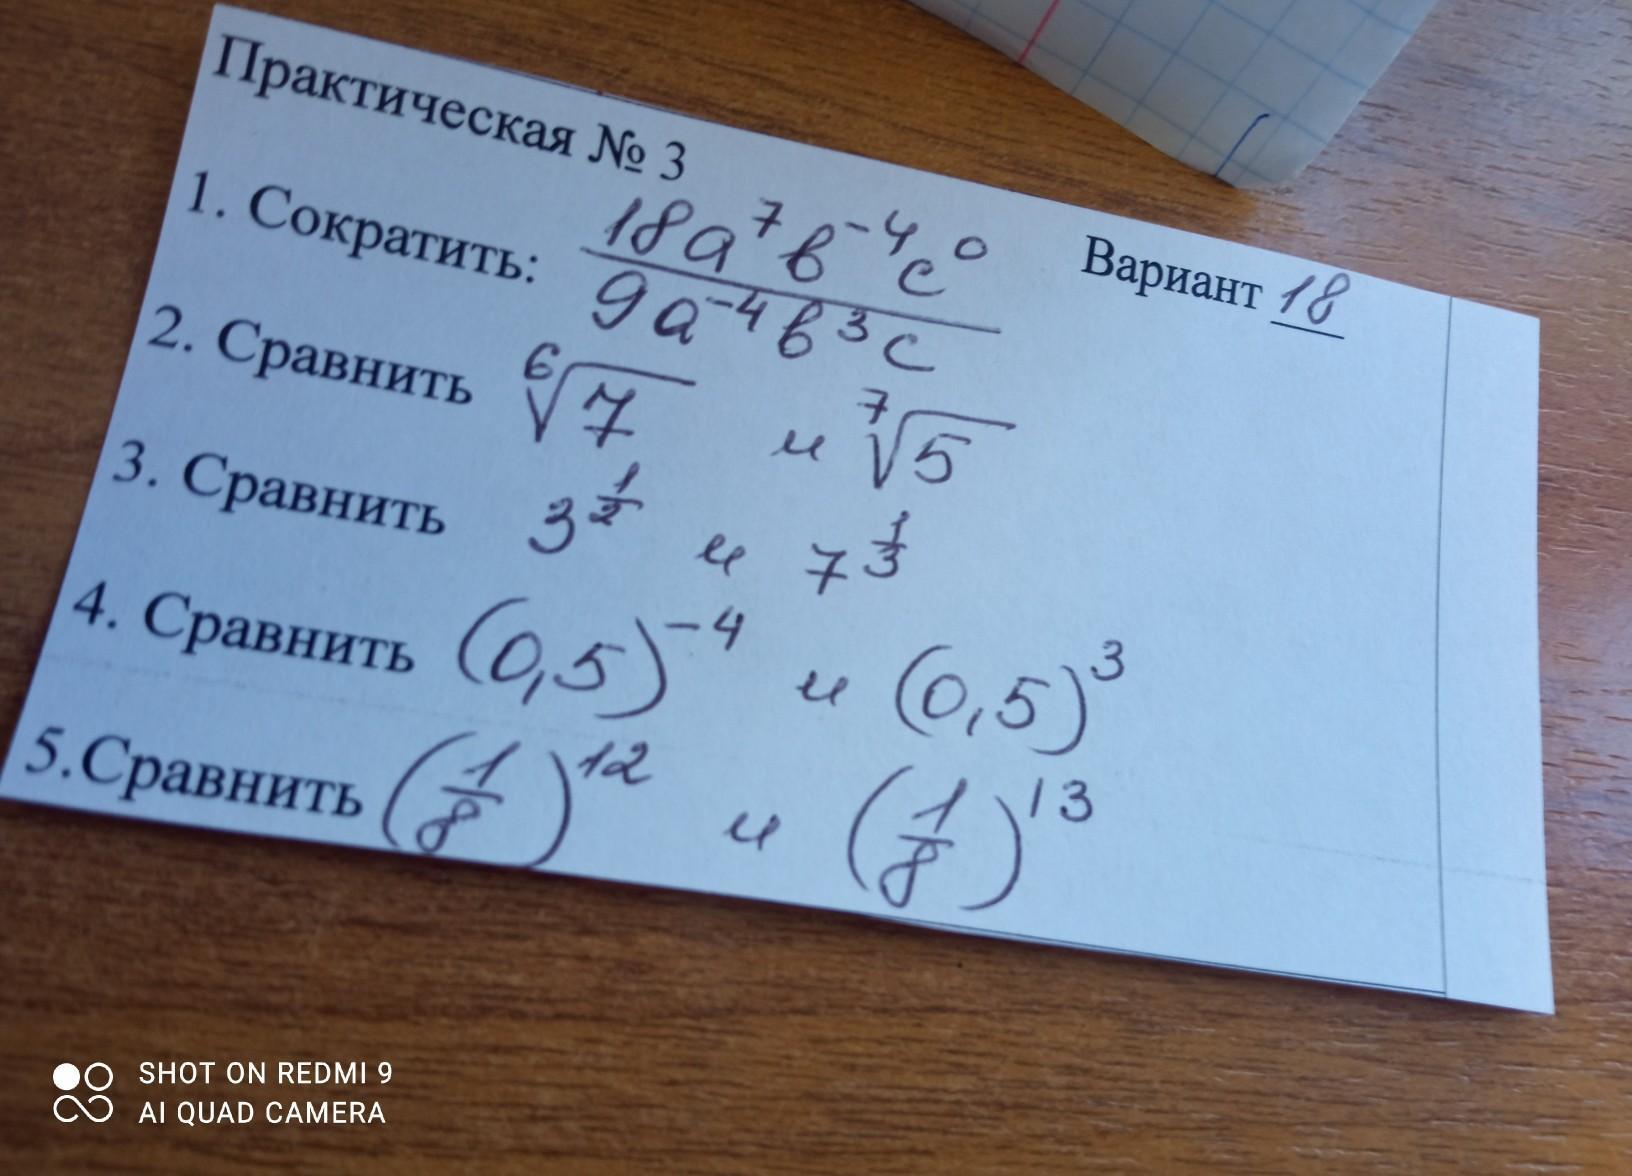 Практическая № 3
Вариант 18
1. Сократить: 18a⁷b⁻⁴c⁰ / 9a⁻⁴b³c
2. Сравнить ⁶√7 и ⁷√5
3. Сравнить 3^(1/2) и 7^(1/3)
4. Сравнить (0,5)⁻⁴ и (0,5)³
5.Сравнить (1/8)¹² и (1/8)¹³
SHOT ON REDMI 9
AI QUAD CAMERA